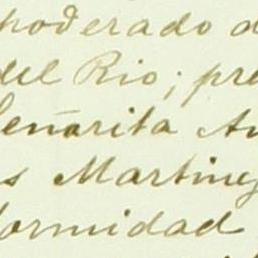 poderado d
del Rio; pre
Señorita Au
s Martinez
formidad